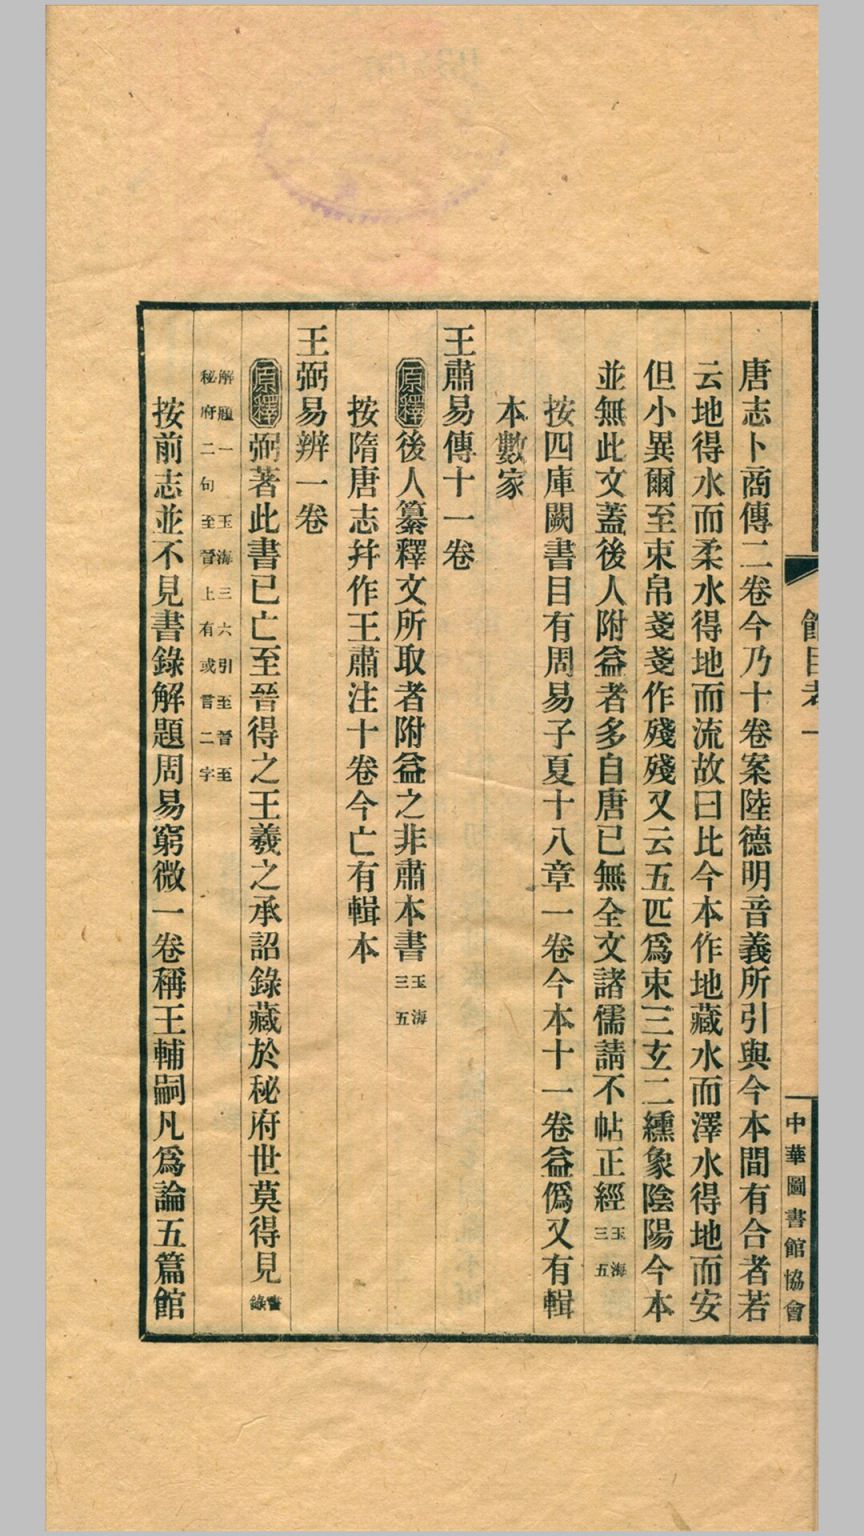 館目考一
中華圖書館協會
唐志卜商傳二卷今乃十卷案陸德明音義所引與今本間有合者若
云地得水而柔水得地而流故曰比今本作地藏水而澤水得地而安
但小異爾至束帛戔戔作殘殘又云五匹爲束三玄二纁象陰陽今本
並無此文蓋後人附益者多自唐已無全文諸儒請不帖正經玉海三五
按四庫闕書目有周易子夏十八章一卷今本十一卷益僞又有輯
本數家
王肅易傳十一卷
原釋後人纂釋文所取者附益之非肅本書玉海三五
按隋唐志幷作王肅注十卷今亡有輯本
王弼易辨一卷
原釋弼著此書已亡至晉得之王羲之承詔錄藏於秘府世莫得見書錄
解題一 玉海三六引至晉至秘府二句至晉上有或言二字
按前志並不見書錄解題周易窮微一卷稱王輔嗣凡爲論五篇館